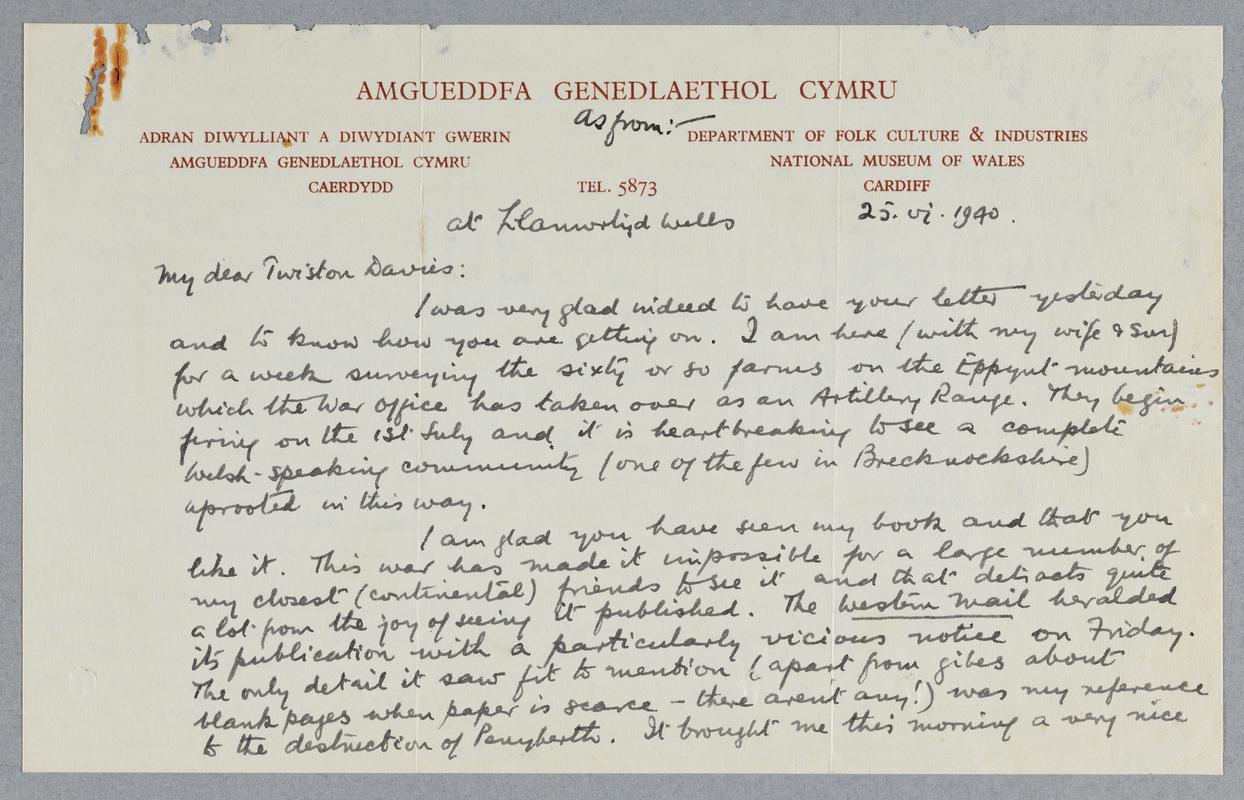 AMGUEDDFA GENEDLAETHOL CYMRU
As from:-
ADRAN DIWYLLIANT A DIWYDIANT GWERIN
AMGUEDDFA GENEDLAETHOL CYMRU
CAERDYDD
TEL. 5873
DEPARTMENT OF FOLK CULTURE & INDUSTRIES
NATIONAL MUSEUM OF WALES
CARDIFF
at Llanwrtyd Wells
25. vi. 1940.
My dear Twiston Davies:
I was very glad indeed to have your letter yesterday
and to know how you are getting on. I am here (with my wife & son)
for a week surveying the sixty or so farms on the Eppynt mountains
which the War Office has taken over as an Artillery Range. They begin
firing on the 1st July and it is heartbreaking to see a complete
Welsh-speaking community (one of the few in Brecknockshire)
uprooted in this way.
I am glad you have seen my book and that you
like it. This war has made it impossible for a large number of
my closest (continental) friends to see it and that detracts quite
a lot from the joy of seeing it published. The Western Mail heralded
its publication with a particularly vicious notice on Friday.
The only detail it saw fit to mention (apart from gibes about
blank pages when paper is scarce - there aren't any!) was my reference
to the destruction of Penyberth. It brought me this morning a very nice